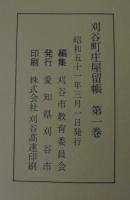 刈谷町庄屋留帳 第一巻
昭和五十一年三月一日発行
編集 刈谷市教育委員会
発行 愛知県刈谷市
印刷 株式会社 刈谷高速印刷